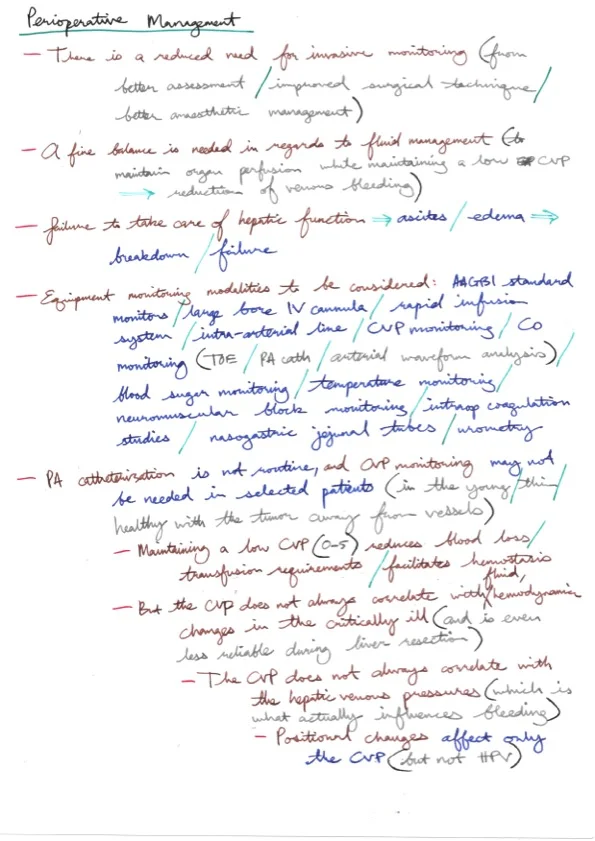 Perioperative Management
- There is a reduced need for invasive monitoring (from
better assessment / improved surgical technique /
better anaesthetic management)
- A fine balance is needed in regards to fluid management (to
maintain organ perfusion while maintaining a low CVP
⇒ reduction of venous bleeding)
- failure to take care of hepatic function ⇒ ascites / edema ⇒
breakdown / failure
- Equipment monitoring modalities to be considered: AAGBI standard
monitors / large bore IV cannula / rapid infusion
system / intra-arterial line / CVP monitoring / CO
monitoring (TOE / PA cath / arterial waveform analysis) /
blood sugar monitoring / temperature monitoring /
neuromuscular block monitoring / intraop coagulation
studies / nasogastric jejunal tubes / urometry
- PA catheterization is not routine, and CVP monitoring may not
be needed in selected patients (in the young / thin /
healthy with the tumor away from vessels)
- Maintaining a low CVP (0-5) reduces blood loss /
transfusion requirements / facilitates hemostasis
- But the CVP does not always correlate with fluid, / hemodynamic
changes in the critically ill (and is even
less reliable during liver resection)
- The CVP does not always correlate with
the hepatic venous pressures (which is
what actually influences bleeding)
- Positional changes affect only
the CVP (but not HPV)